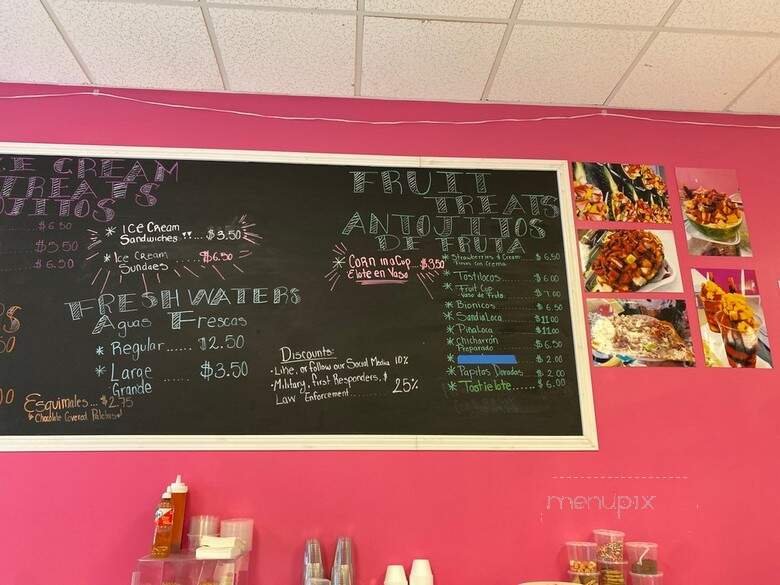 CE CREAM
TREATS
OJITOS
$6.50
$5.50
$6.50
* ICE Cream
Sandwiches .... $3.50
* Ice Cream
Sundaes $6.50
FRESH WATERS
Aguas Frescas
* Regular...... $2.50
* Large ..... $3.50
Grande
Esquimales... $2.75
* Chocolate Covered Paletas
FRUIT
TREATS
ANTOJITOS
DE FRUTA
* CORN in a Cup $3.50
Elote en Vaso
* Strawberries & Cream $6.50
Fresas Con Crema
* Tostilocos $6.00
* Fruit Cup $7.00
Vaso de Fruta
* Bionicos $6.50
* Sandia Loca $11.00
* Piña Loca $11.00
* Chicharrón $6.50
Preparado
* $2.00
* Papitas Doradas $2.00
* Tostielote...... $6.00
Discounts:
• Like, or follow our Social Media 10%
• Military, first Responders, &
Law Enforcement 25%
menupix